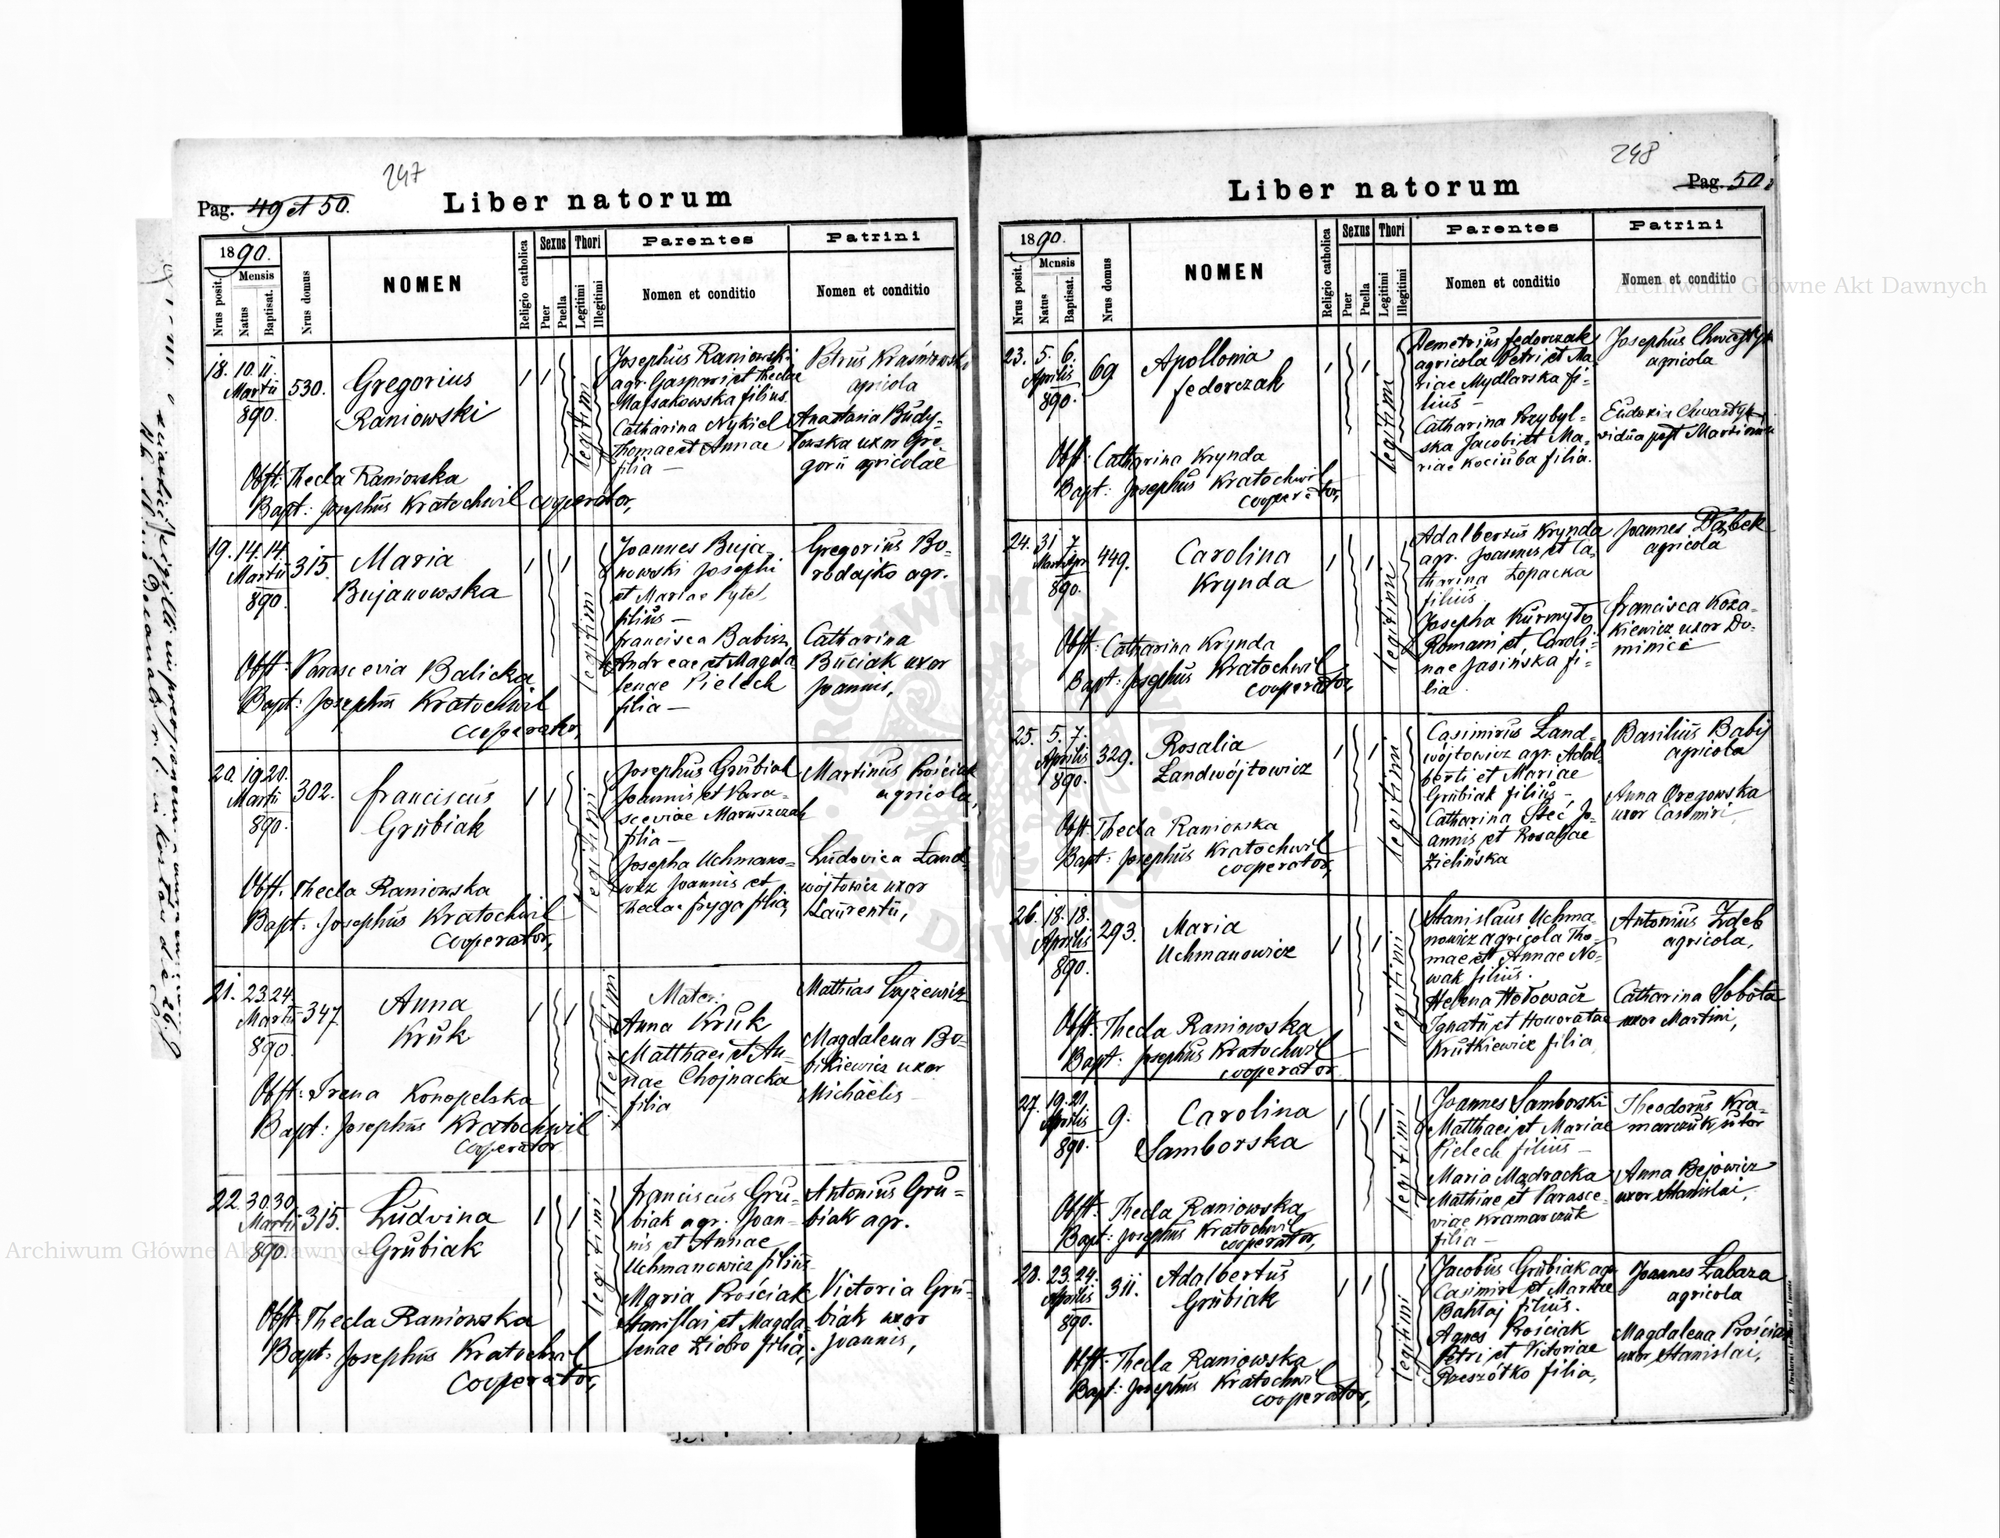 247
Pag. 49 et 50.
Liber natorum
1890.
Mensis
Nrus posit.
Natus
Baptisat.
Nrus domus
NOMEN
Religio catholica
Sexus
Puer
Puella
Thori
Legitimi
Illegitimi
Parentes
Nomen et conditio
Patrini
Nomen et conditio
18. 10. 11.
Martii
890.
530.
Gregorius
Raniowski
1 1
legitimi
Josephus Raniowski
agr. Gaspari et Theclae
Malsakowska filius.
Catharina Nykiel
Thomae et Annae
filia —
Petrus
agricola
Anastasia Budy-
uxor Gre-
gorii agricolae
Obst: Thecla Raniowska
Bapt: Josephus Kratochwil cooperator,
19. 14. 14.
Martii
890.
315.
Maria
Bujanowska
1 1
legitimi
Joannes Buja-
nowski Josephi
et Mariae Pytel
filius —
Francisca Babisz
Andreae et Magda
lenae Pielech
filia —
Gregorius Bo-
rodajko agr.
Catharina
Buciak uxor
Joannis,
Obst: Parascevia Balicka
Bapt: Josephus Kratochwil
cooperator,
20. 19. 20.
Martii
890.
302.
Franciscus
Grubiak
1 1
legitimi
Josephus Grubiak
Joannis et Para-
sceviae Maruszczak
filia —
Josepha Uchmano-
wicz Joannis et
Theclae Fryga filia,
Martinus Prościak
agricola,
Ludovica Land-
wójtowicz uxor
Laurentii,
Obst: Thecla Raniowska
Bapt: Josephus Kratochwil
cooperator,
21. 23. 24.
Martii
890.
347.
Anna
Kruk
1 1
illegitimi
Mater:
Anna Kruk
Matthaei et An-
nae Chojnacka
filia
Mathias
Magdalena Bo-
bikiewicz uxor
Michaelis —
Obst: Irena Konopelska
Bapt: Josephus Kratochwil
cooperator
22. 30. 30.
Martii
890.
315.
Ludvina
Grubiak
1 1
legitimi
Franciscus Gru-
biak agr. Joan-
nis et Annae
Uchmanowicz filius
Maria Prościak
Stanislai et Magda-
lenae Ziobro filia,
Antonius Gru-
biak agr.
Victoria Gru-
biak uxor
Joannis,
Obst: Thecla Raniowska
Bapt: Josephus Kratochwil
cooperator,
248
Liber natorum
Pag. 50.
1890.
Mensis
Nrus posit.
Natus
Baptisat.
Nrus domus
NOMEN
Religio catholica
Sexus
Puer
Puella
Thori
Legitimi
Illegitimi
Parentes
Nomen et conditio
Patrini
Nomen et conditio
23. 5. 6.
Aprilis
890.
69.
Apollonia
Fedorczak
1 1
legitimi
Demetrius Fedorczak
agricola Petri et Ma-
riae Mydlarska fi-
lius —
Catharina Przybyl-
ska Jacobi et Ma-
riae Kociuba filia.
Josephus
agricola
Eudoxia
vidua post
Obst: Catharina Krynda
Bapt: Josephus Kratochwil
cooperator,
24. 31. 7.
Martii Apr.
890.
449.
Carolina
Krynda
1 1
legitimi
Adalbertus Krynda
agr. Joannis et Ca-
tharina Łopacka
filius
Josepha Kurmyło
Romani et Caroli-
nae Jasińska fi-
lia
Joannes Dąbek
agricola
Francisca Koza-
kiewicz uxor Do-
minici
Obst: Catharina Krynda
Bapt: Josephus Kratochwil
cooperator,
25. 5. 7.
Aprilis
890.
329.
Rosalia
Landwójtowicz
1 1
legitimi
Casimirus Land-
wójtowicz agr. Adal-
berti et Mariae
Grubiak filius —,
Catharina Steć Jo-
annis et Rosaliae
Zielińska
Basilius Babij
agricola
Anna Oregowska
uxor Casimiri,
Obst: Thecla Raniowska
Bapt: Josephus Kratochwil
cooperator,
26. 18. 18.
Aprilis
890.
293.
Maria
Uchmanowicz
1 1
legitimi
Stanislaus Uchma
nowicz agricola Tho-
mae et Annae No-
wak filius.
Helena Hołowacz
Ignatii et Honoratae
Krutkiewicz filia
Antonius Zdeb
agricola,
Catharina Sobota
uxor Martini,
Obst: Thecla Raniowska
Bapt: Josephus Kratochwil
cooperator
27. 19. 21.
Aprilis
890.
9.
Carolina
Samborska
1 1
legitimi
Joannes Samborski
Matthaei et Mariae
Pielech filius —
Maria Mądracka
Mathiae et Parasce-
viae Kramarczuk
filia —
Theodorus Kra-
marczuk sutor
Anna Bejowicz
uxor Stanislai,
Obst: Thecla Raniowska
Bapt: Josephus Kratochwil
cooperator,
28. 23. 24.
Aprilis
890.
311.
Adalbertus
Grubiak
1 1
legitimi
Jacobus Grubiak agr.
Casimiri et Martae
Bahtaj filius.
Agnes Prościak
Petri et Victoriae
Rzeszótko filia,
Joannes Zabaza
agricola
Magdalena Prościak
uxor Stanislai,
Obst: Thecla Raniowska
Bapt: Josephus Kratochwil
cooperator,
Archiwum Główne Akt Dawnych
Archiwum Główne Akt Dawnych